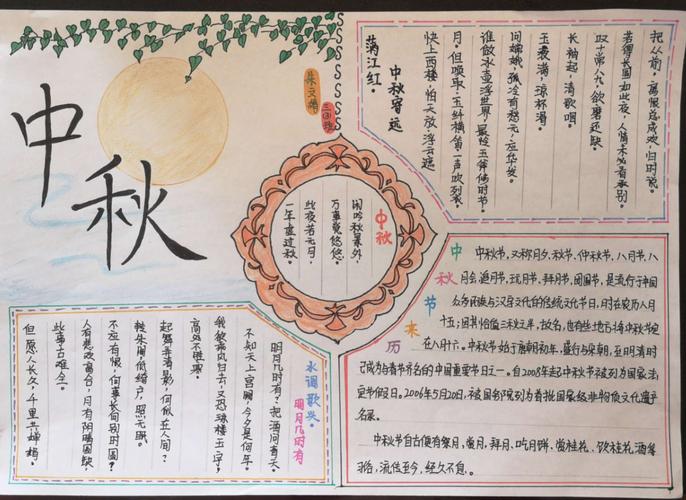 中秋
三(3)班
满江红。
中秋寄远
快上西楼，怕天放浮云遮
月。但唤取、玉纤横笛一声吹裂。
谁做冰壶浮世界，最怜玉斧修时节。
问嫦娥，孤冷有愁无，应华发。
玉液满，琼杯滑。
长袖起，清歌咽。
叹十常八九，欲磨还缺。
若得长圆如此夜，人情未必看承别。
把从前，离恨总成欢，归时说。
中秋
闲吟秋景外，
万事觉悠悠。
此夜若无月，
一年虚过秋。
水调歌头。
明月几时有
明月几时有？把酒问青天。
不知天上宫阙，今夕是何年。
我欲乘风归去，又恐琼楼玉宇，
高处不胜寒。
起舞弄清影，何似在人间？
转朱阁，低绮户，照无眠。
不应有恨，何事长向别时圆？
人有悲欢离合，月有阴晴圆缺，
此事古难全。
但愿人长久，千里共婵娟。
中秋节来历
中秋节，又称月夕、秋节、仲秋节、八月节、八
月会、追月节、玩月节、拜月节、团圆节，是流行于中国
众多民族与汉字文化的传统文化节日，时在农历八月
十五；因其恰值三秋之半，故名，也有些地方将中秋节定
在八月十六。中秋节始于唐朝初年，盛行与宋朝，至明清时
已成为与春节齐名的中国重要节日之一。自2008年起中秋节被列为国家法
定节假日。2006年5月20日，被国务院列为首批国家级非物质文化遗产
名录。
中秋节自古便有祭月、赏月、拜月、吃月饼、赏桂花、饮桂花酒等
习俗，流传至今，经久不息。